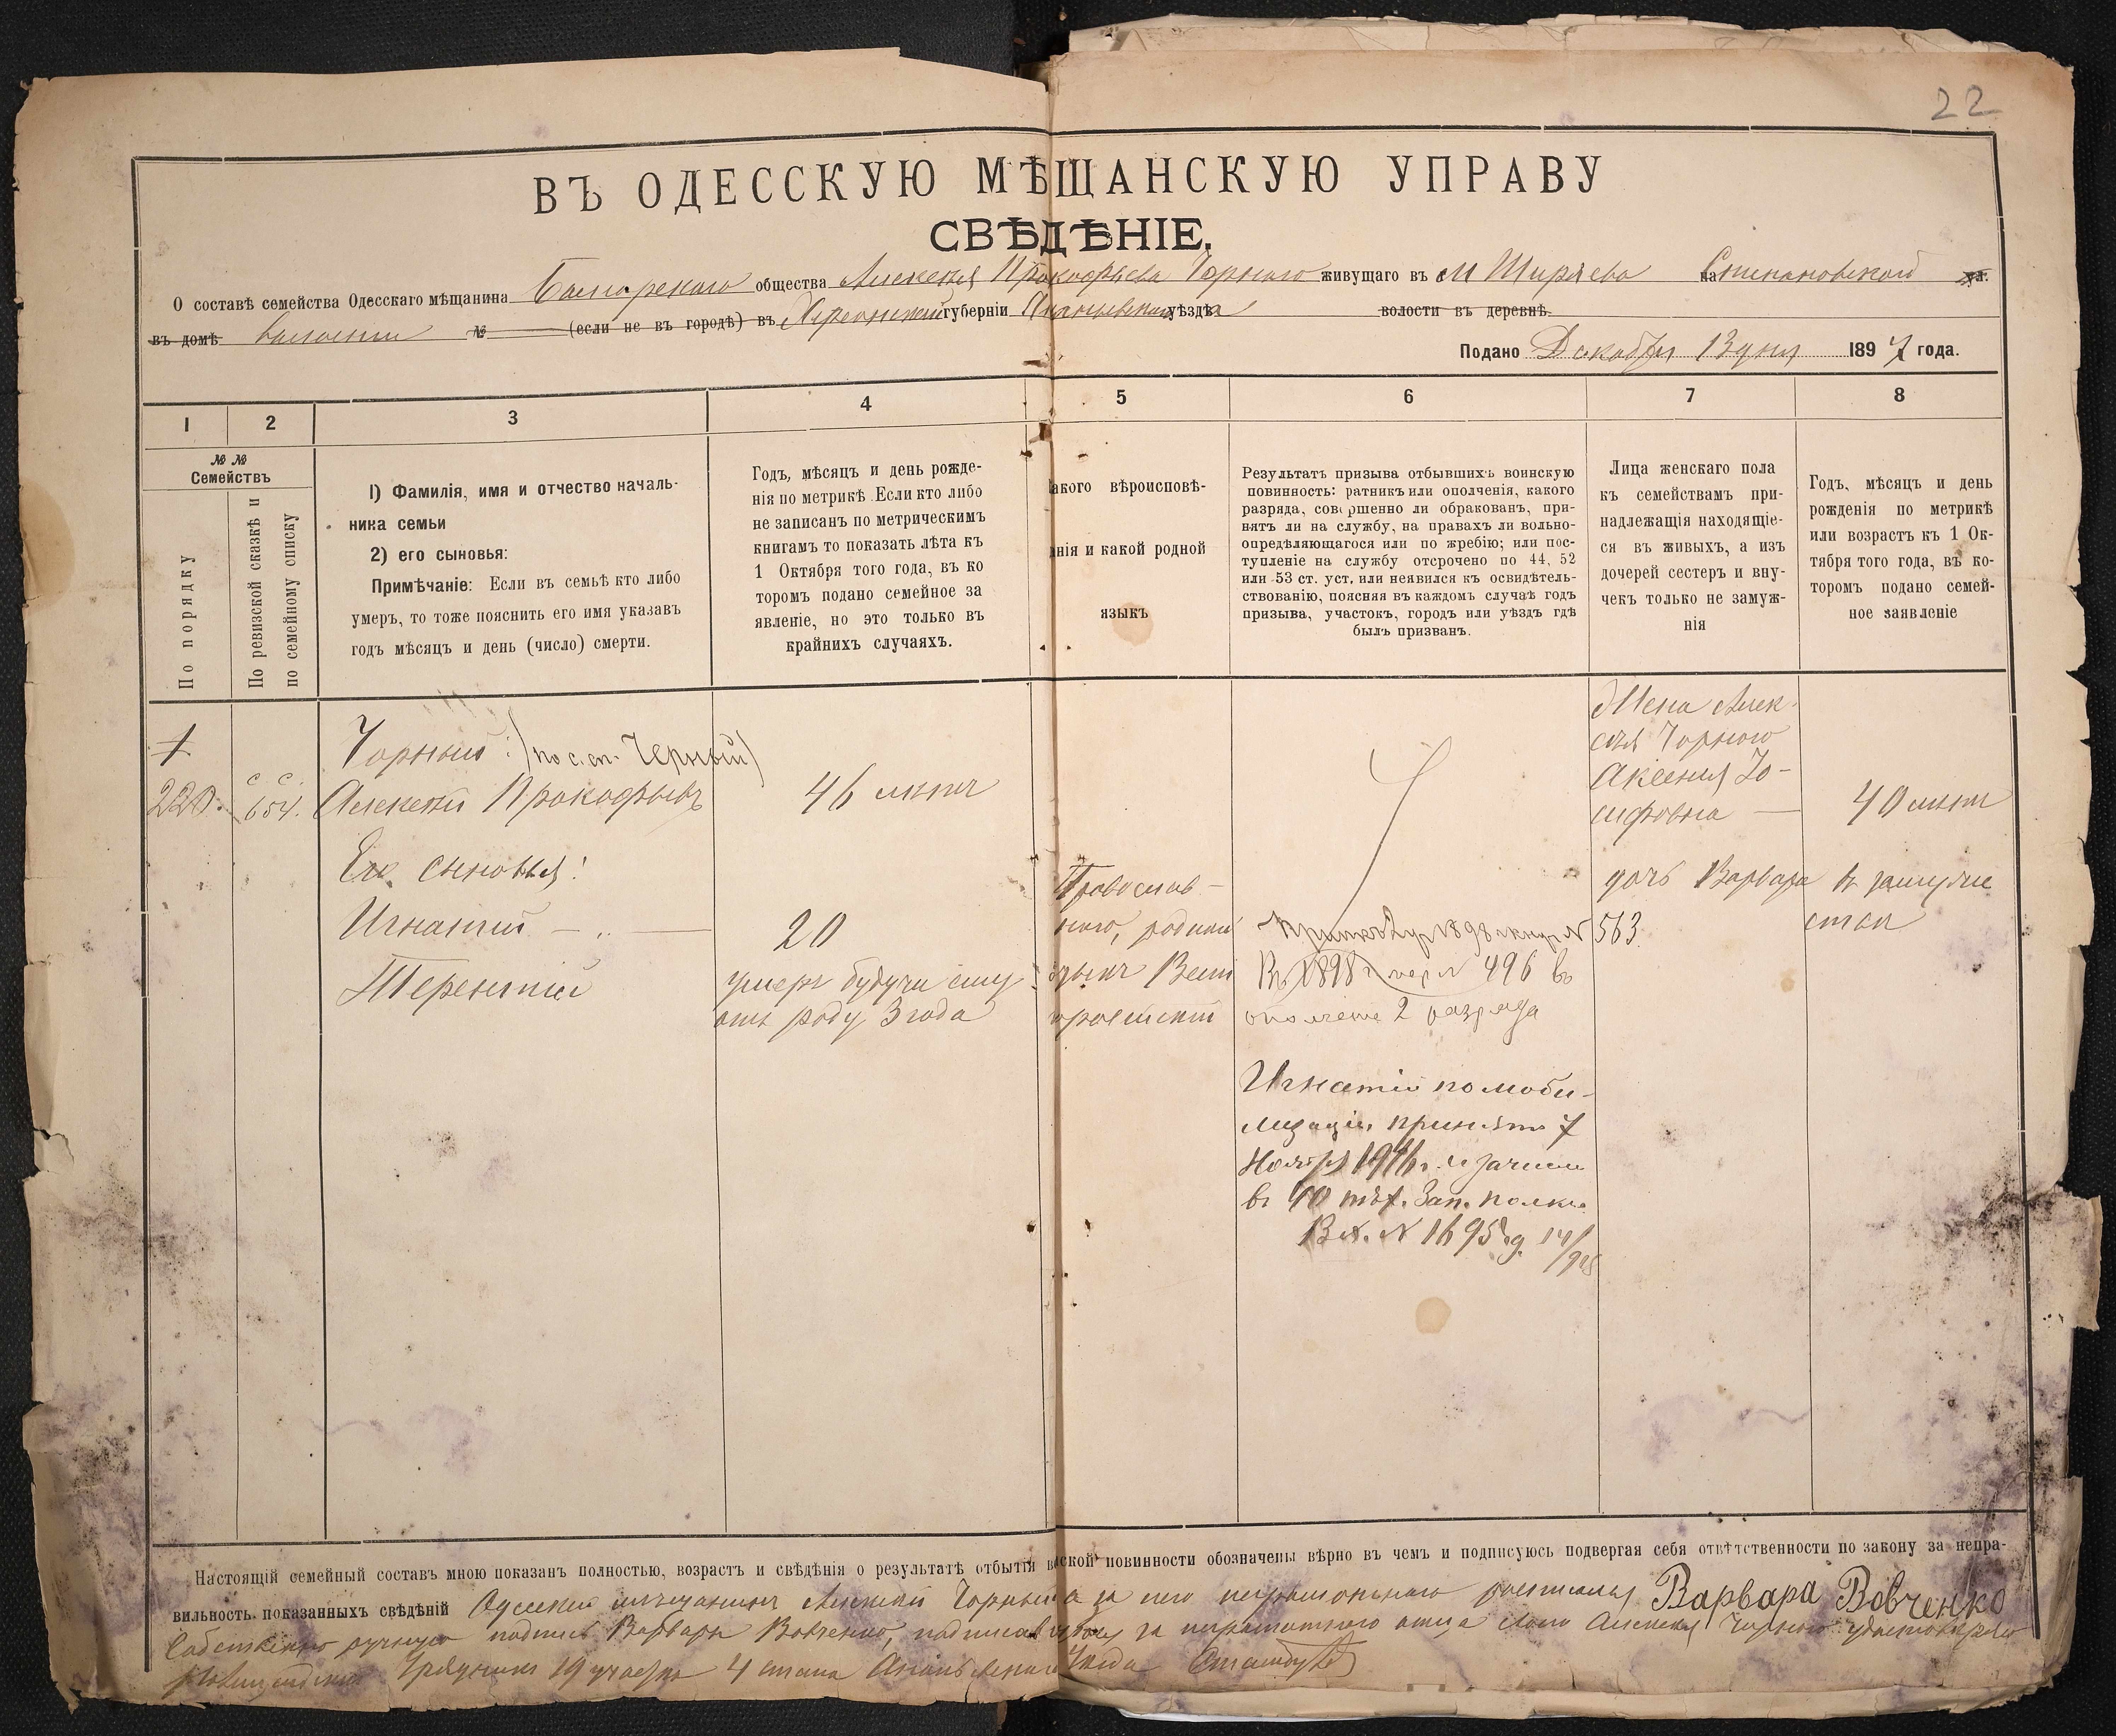 22
ВЪ ОДЕССКУЮ МѢЩАНСКУЮ УПРАВУ
СВѢДѢНІЕ.
О составѣ семейства Одесскаго мѣщанина общества Алексея Прокофьева Чорнаго живущаго въ м Ширяево на Степановской ул.
въ домѣ волости № (если не въ городѣ) въ Херсонской губерніи Ананьевскаго уѣзда волости въ деревнѣ
Подано Декабря 13 дня 1897 года.
1 2 3 4 5 6 7 8
№ № Семействъ
По порядку
По ревизской сказкѣ и по семейному списку
1) Фамилія, имя и отчество началь-
ника семьи
2) его сыновья:
Примѣчаніе: Если въ семьѣ кто либо
умеръ, то тоже пояснить его имя указавъ
годъ мѣсяцъ и день (число) смерти.
Годъ, мѣсяцъ и день рожде-
нія по метрикѣ. Если кто либо
не записанъ по метрическимъ
книгамъ то показать лѣта къ
1 Октября того года, въ ко
торомъ подано семейное за
явленіе, но это только въ
крайнихъ случаяхъ.
акого вѣроисповѣ-
нія и какой родной
языкъ
Результатъ призыва отбывшихъ воинскую
повинность: ратникъ или ополченія, какого
разряда, совершенно ли обракованъ, при-
нятъ ли на службу, на правахъ ли вольно-
опредѣляющагося или по жребію; или пос-
тупленіе на службу отсрочено по 44, 52
или 53 ст. уст. или неявился къ освидѣтель-
ствованію, поясняя въ каждомъ случаѣ годъ
призыва, участокъ, городъ или уѣздъ гдѣ
былъ призванъ.
Лица женскаго пола
къ семействамъ при-
надлежащія находящіе-
ся въ живыхъ, а изъ
дочерей сестеръ и вну-
чекъ только не замуж-
нія
Годъ, мѣсяцъ и день
рожденія по метрикѣ
или возрастъ къ 1 Ок-
тября того года, въ ко-
торомъ подано семей-
ное заявленіе
1
220.
с. с.
654.
Чорный: (по с. сп. Черный)
Алексей Прокофьевъ
Его сыновья:
Игнатий
Терентий
46 летъ
20
умеръ будучи
отъ роду 3 года
Православ-
ного, родной
языкъ Вели
коросийский
1898 № 563
Въ 1898 г № 496 въ
ополчение 2 разряда
Игнатій по моби-
лизаціи принятъ 7
Ноября 1916 г. и зачислен
въ 40 пѣх. Зап. полкъ.
Вх. № 1695
Жена Алек-
сея Чорного
Аксения Io-
сифовна
40 летъ
дочь Варвара
в замужес
стве
Настоящій семейный составъ мною показанъ полностью, возрастъ и свѣдѣнія о результатѣ отбытія в ской повинности обозначены вѣрно въ чемъ и подписуюсь подвергая себя отвѣтственности по закону за непра-
вильность показанныхъ свѣдѣній Одесский мещанинъ Алексей Чорный а за него неграмотнаго росписалась Варвара Вовченко
Собственно ручную подпись Варвары Вовченко, подписавшуюся за неграмотного отца своего Алексея Чорного удостоверяю
Урядникъ 19 участка 4 стана Ананьевскаго уезда